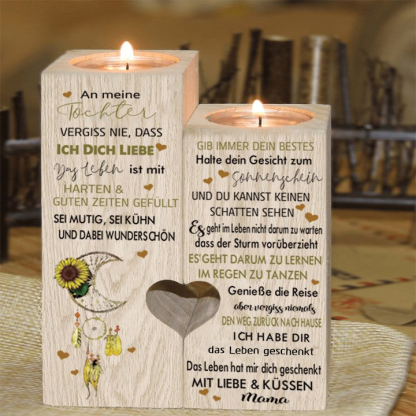 An meine
Tochter
VERGISS NIE, DASS
ICH DICH LIEBE
Das Leben ist mit
HARTEN &
GUTEN ZEITEN GEFÜLLT
SEI MUTIG, SEI KÜHN
UND DABEI WUNDERSCHÖN
GIB IMMER DEIN BESTES
Halte dein Gesicht zum
Sonnenschein
UND DU KANNST KEINEN
SCHATTEN SEHEN
Es geht im Leben nicht darum zu warten
dass der Sturm vorüberzieht
ES GEHT DARUM ZU LERNEN
IM REGEN ZU TANZEN
Genieße die Reise
aber vergiss niemals
DEN WEG ZURÜCK NACH HAUSE
ICH HABE DIR
das Leben geschenkt
Das Leben hat mir dich geschenkt
MIT LIEBE & KÜSSEN
Mama